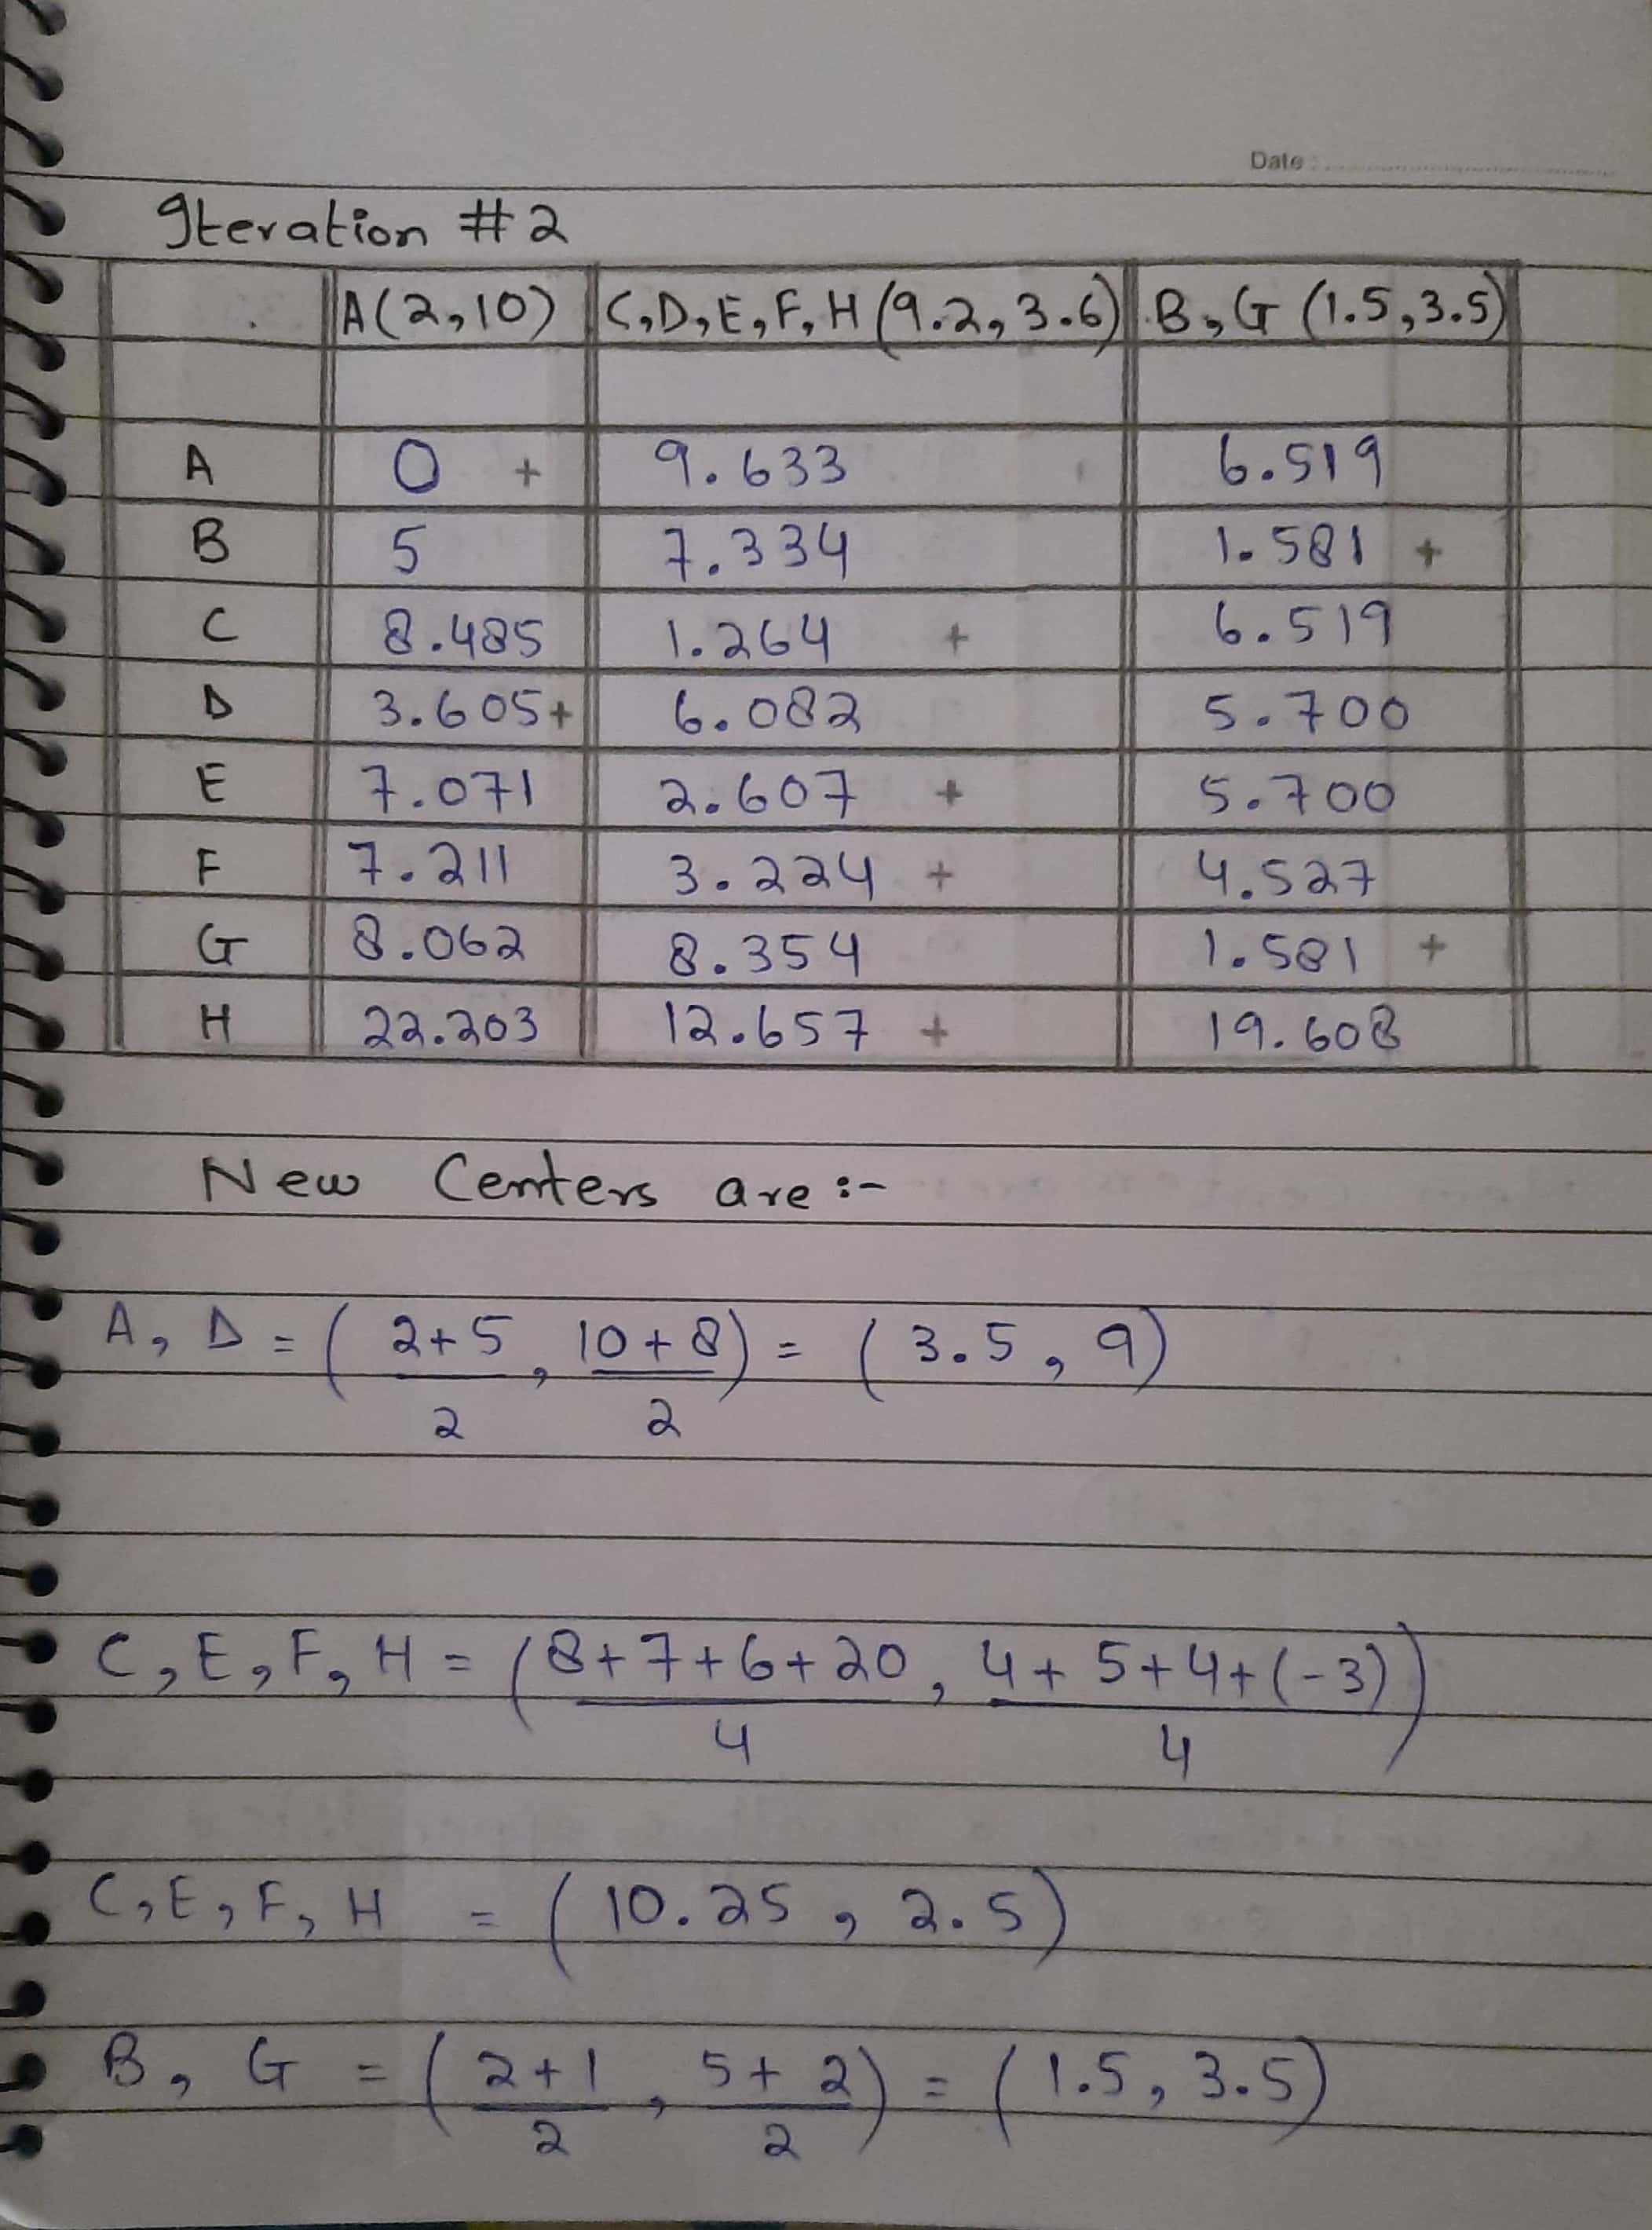 Date :
Iteration #2
A(2,10) C,D,E,F,H(9.2,3.6) B,G(1.5,3.5)
A 0 + 9.633 6.519
B 5 7.334 1.581 +
C 8.485 1.264 + 6.519
D 3.605+ 6.082 5.700
E 7.071 2.607 + 5.700
F 7.211 3.224 + 4.527
G 8.062 8.354 1.581 +
H 22.203 12.657 + 19.608
New Centers are :-
A, D = ( 2+5 , 10+8 ) = ( 3.5 , 9 )
2 2
C,E,F,H = ( 8+7+6+20 , 4+5+4+(-3) )
4 4
C,E,F,H = ( 10.25 , 2.5 )
B, G = ( 2+1 , 5+2 ) = ( 1.5, 3.5 )
2 2